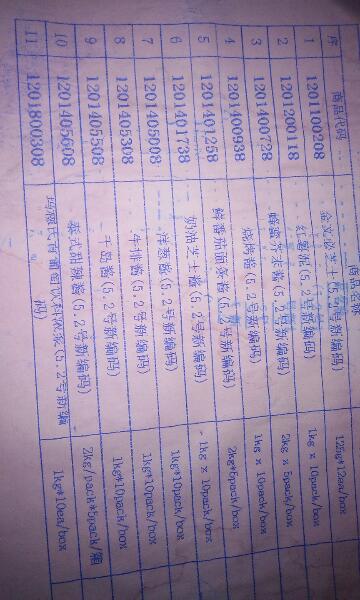 序 商品代码 商品名称
1 1201100208 芝士(5.2号新编码) 125g*12ea/box
2 1201200118 红薯泥(5.2号新编码) 1kg x 10pack/box
3 1201400728 蜂蜜芥末酱(5.2号新编码) 2kg x 5pack/box
4 1201400938 烧烤酱(5.2号新编码) 1kg x 10pack/box
5 1201401238 鲜番茄面条酱(5.2号新编码) 2kg*6pack/box
6 1201401738 奶油芝士酱(5.2号新编码) 1kg x 10pack/box
7 1201405008 洋葱酱(5.2号新编码) 1kg*10pack/box
8 1201405398 牛排酱(5.2号新编码) 1kg*10pack/box
9 1201405598 千岛酱(5.2号新编码) 1kg*10pack/box
10 1201405698 泰式甜辣酱(5.2号新编码) 2kg/pack*5pack/箱
11 1201800308 青葡萄饮料浓浆(5.2号新编 1kg*10ea/box
码)